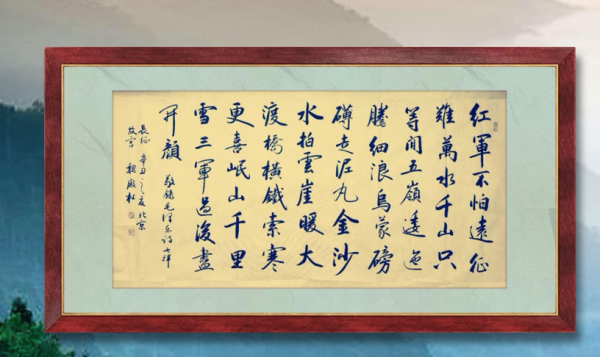 紅軍不怕遠征
難萬水千山只
等間五嶺逶迤
騰細浪烏蒙磅
礴走泥丸金沙
水拍雲崖暖大
渡橋橫鐵索寒
更喜岷山千里
雪三軍過後盡
开顏 敬錄毛泽东詩七律
長征 辛丑之夏北京
故宮